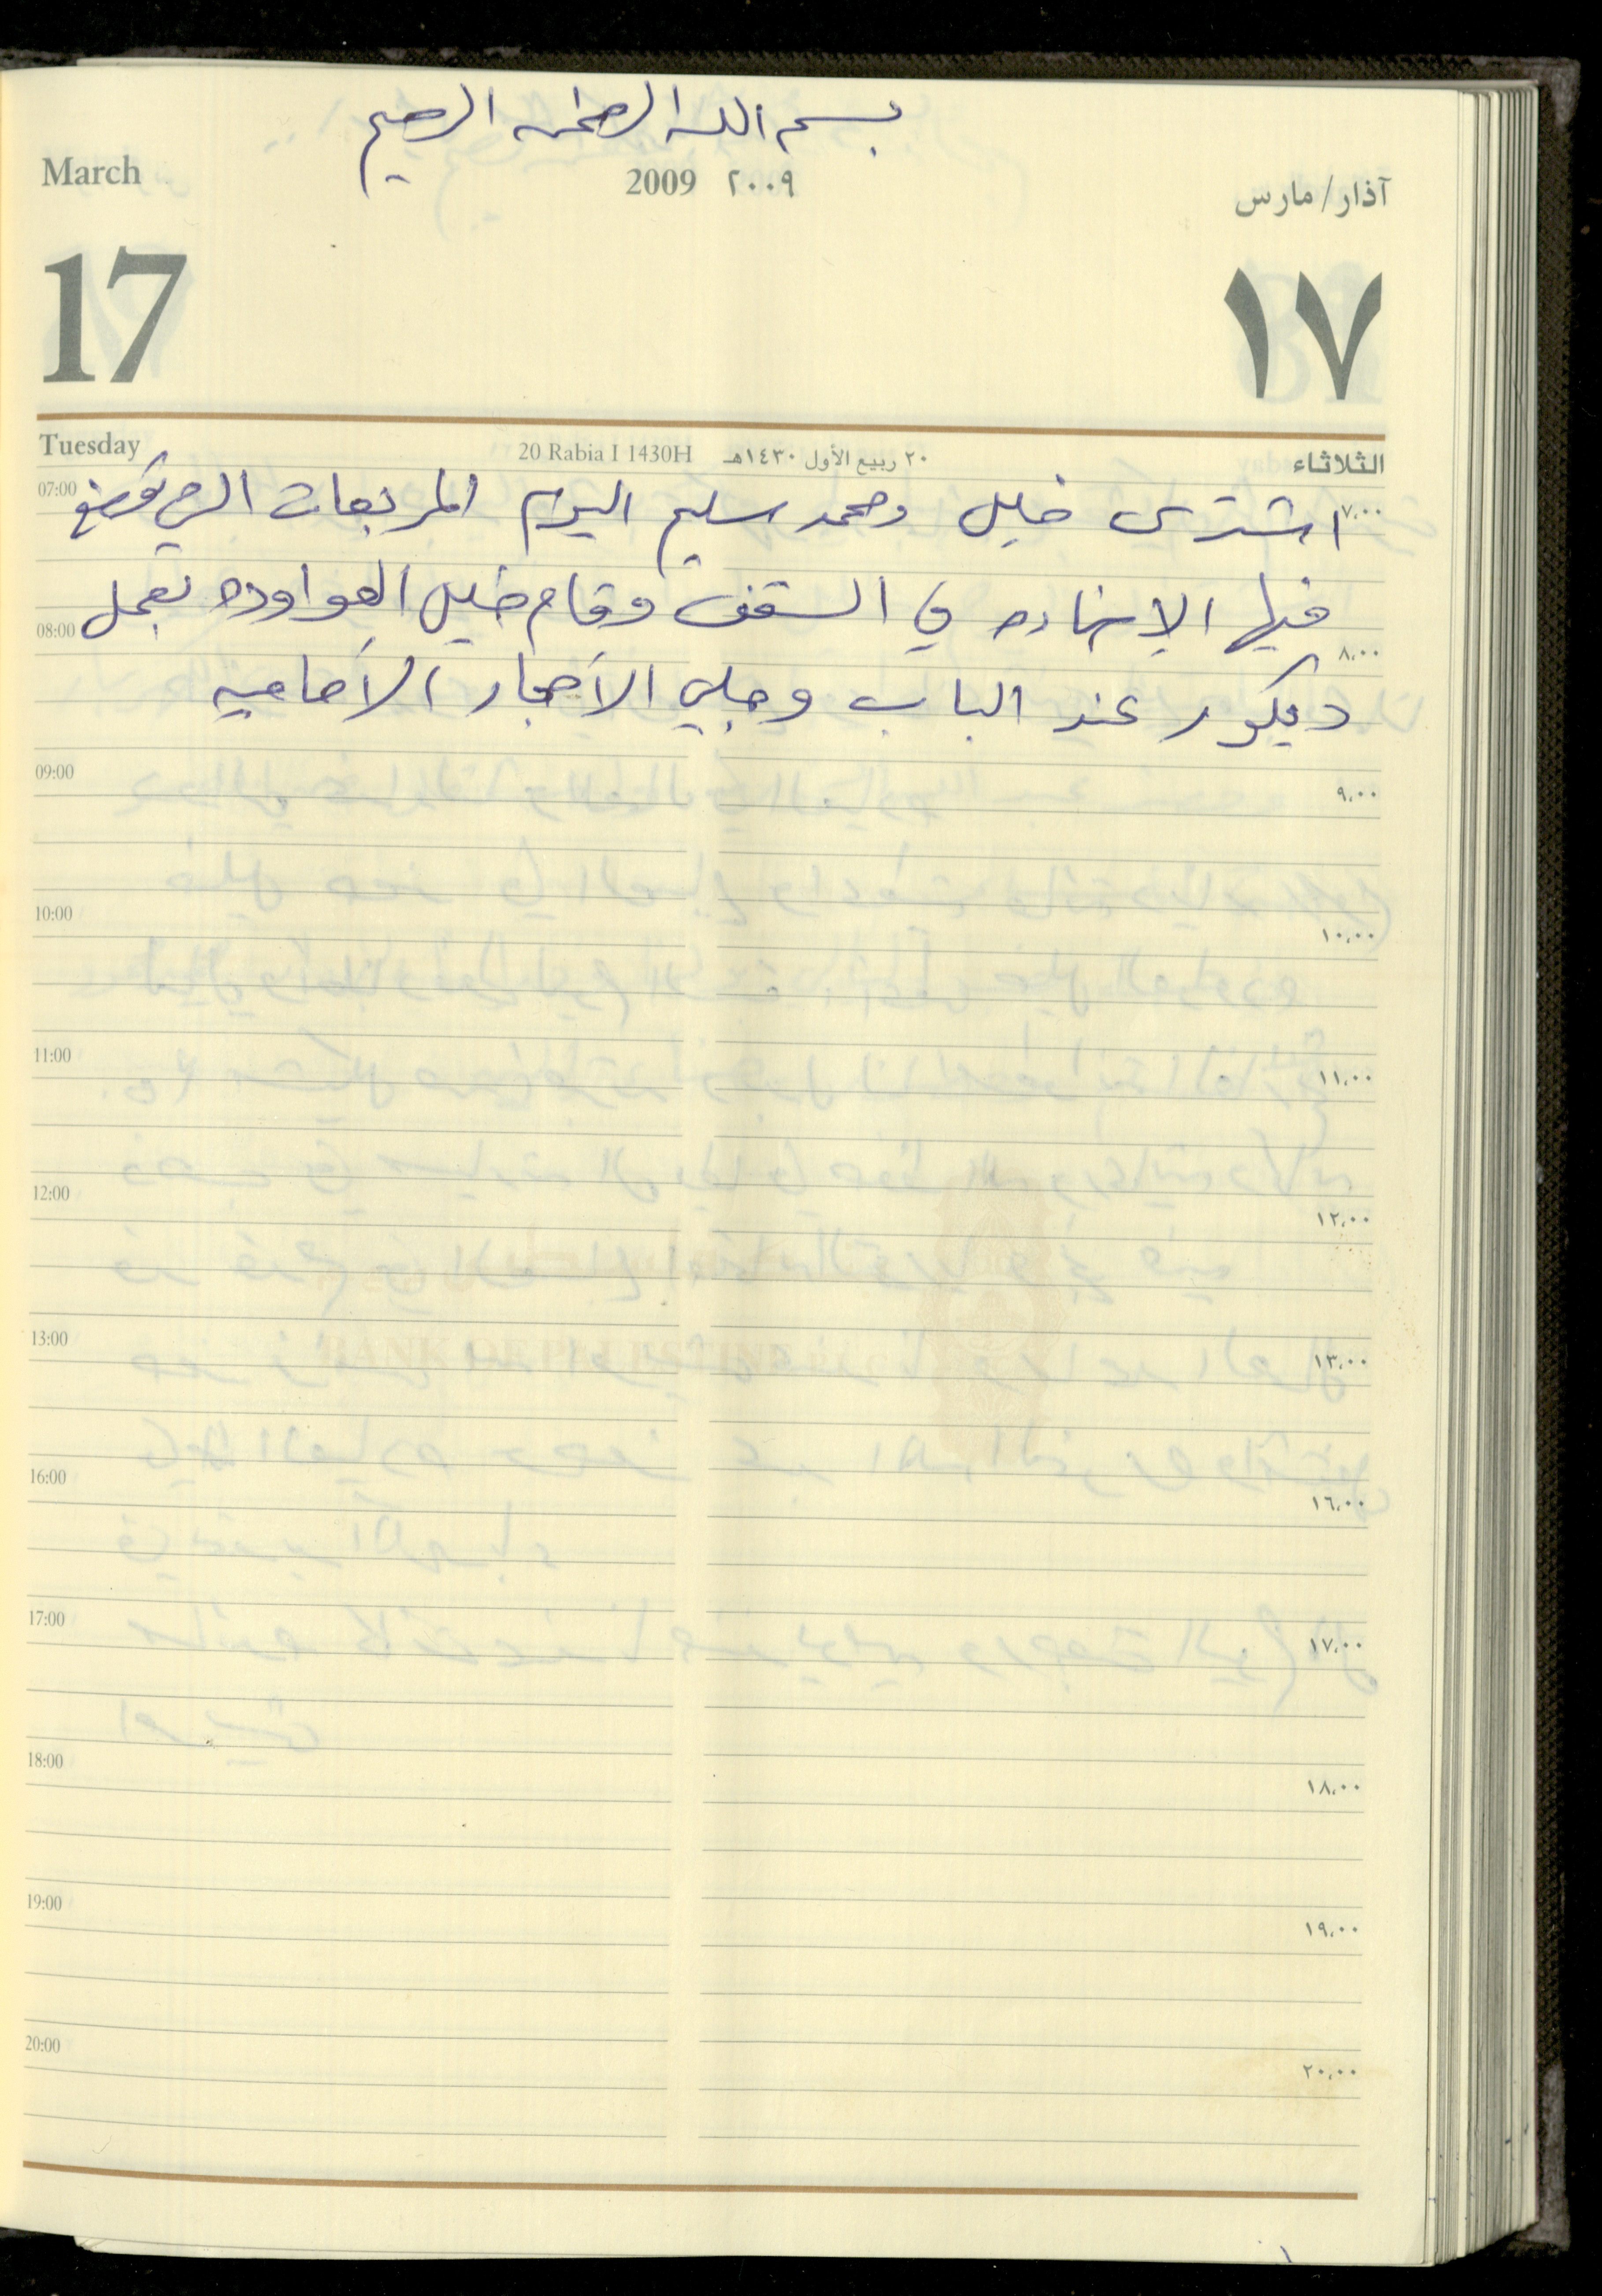 بسم الله الرحمن الرحيم
March
2009 ٢٠٠٩
آذار/مارس
17
١٧
Tuesday
20 Rabia I 1430H ٢٠ ربيع الأول ١٤٣٠هـ
الثلاثاء
07:00 ٧,٠٠
اشترى خليل ومحمد سليم اليوم المربعات التي توضع
فيها الإناره في السقف وقام خليل العواوده بعمل
08:00 ٨,٠٠
ديكور عند الباب وجلي الأحجار الأماميه
09:00 ٩,٠٠
10:00 ١٠,٠٠
11:00 ١١,٠٠
12:00 ١٢,٠٠
13:00 ١٣,٠٠
BANK OF PALESTINE
16:00 ١٦,٠٠
17:00 ١٧,٠٠
18:00 ١٨,٠٠
19:00 ١٩,٠٠
20:00 ٢٠,٠٠